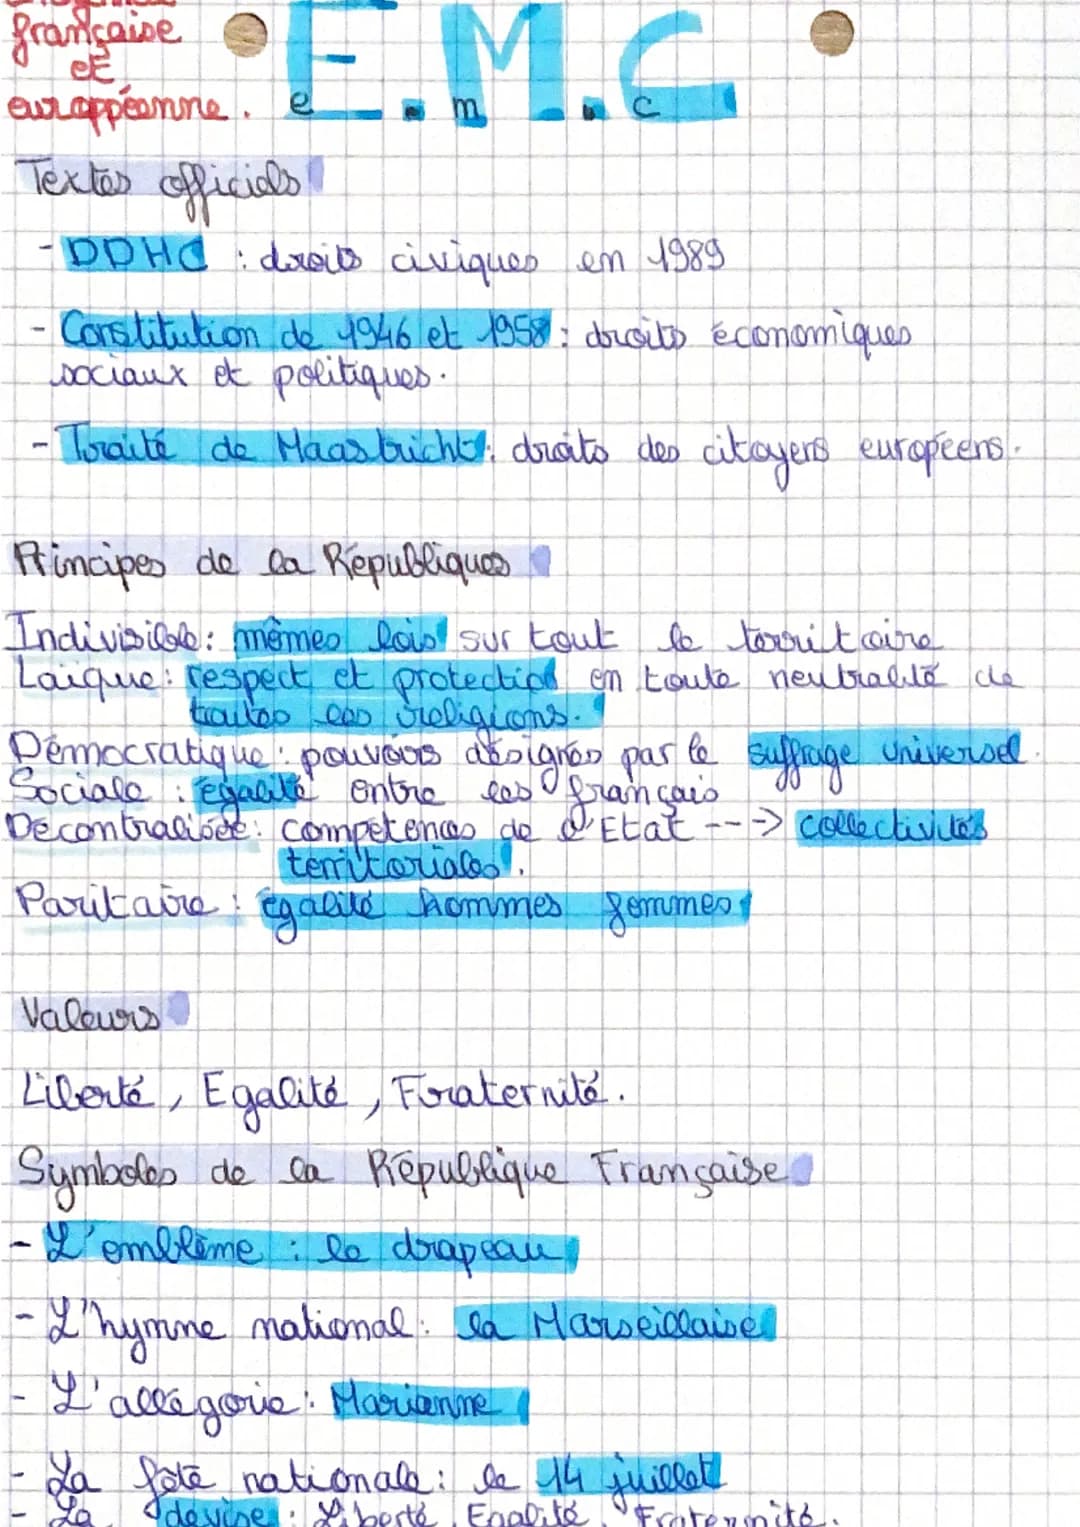 française
et
europpéenne.
E.M.C
e m c
Textes officiels
- DDHC : droits civiques en 1989
- Constitution de 1946 et 1958 : droits économiques
sociaux et politiques.
- Traité de Maastricht : droits des citoyens européens.
Principes de la Républiques
Indivisible : mêmes lois sur tout le territoire
Laïque : respect et protection en toute neutralité de
toutes les religions.
Démocratique : pouvoirs désignés par le suffrage universel.
Sociale : égalité entre les français
Décentralisée : compétences de l'Etat ---> collectivités
territoriales.
Paritaire : égalité hommes femmes
Valeurs
Liberté, Egalité, Fraternité.
Symboles de la République Française
- L'emblème : le drapeau
- L'hymne national : la Marseillaise
- L'allégorie : Marianne
- La fête nationale : le 14 juillet
- La devise : Liberté, Egalité, Fraternité.